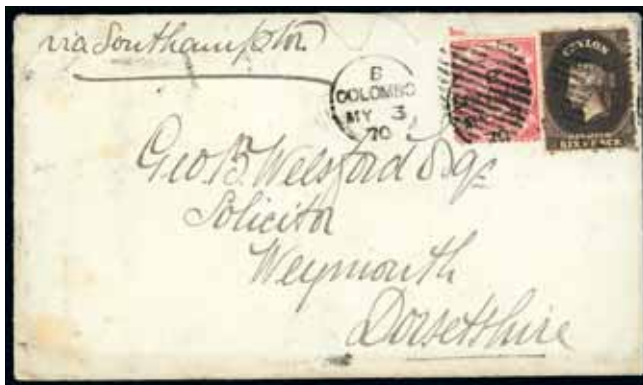 via Southampton
B
COLOMBO
MY 3
70
CEYLON
SIXPENCE
Geo. B. Welsford Esqr
Solicitor
Weymouth
Dorsetshire